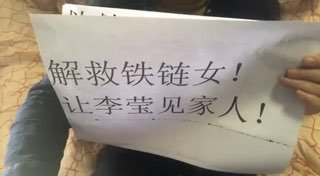 解救铁链女！
让李莹见家人！